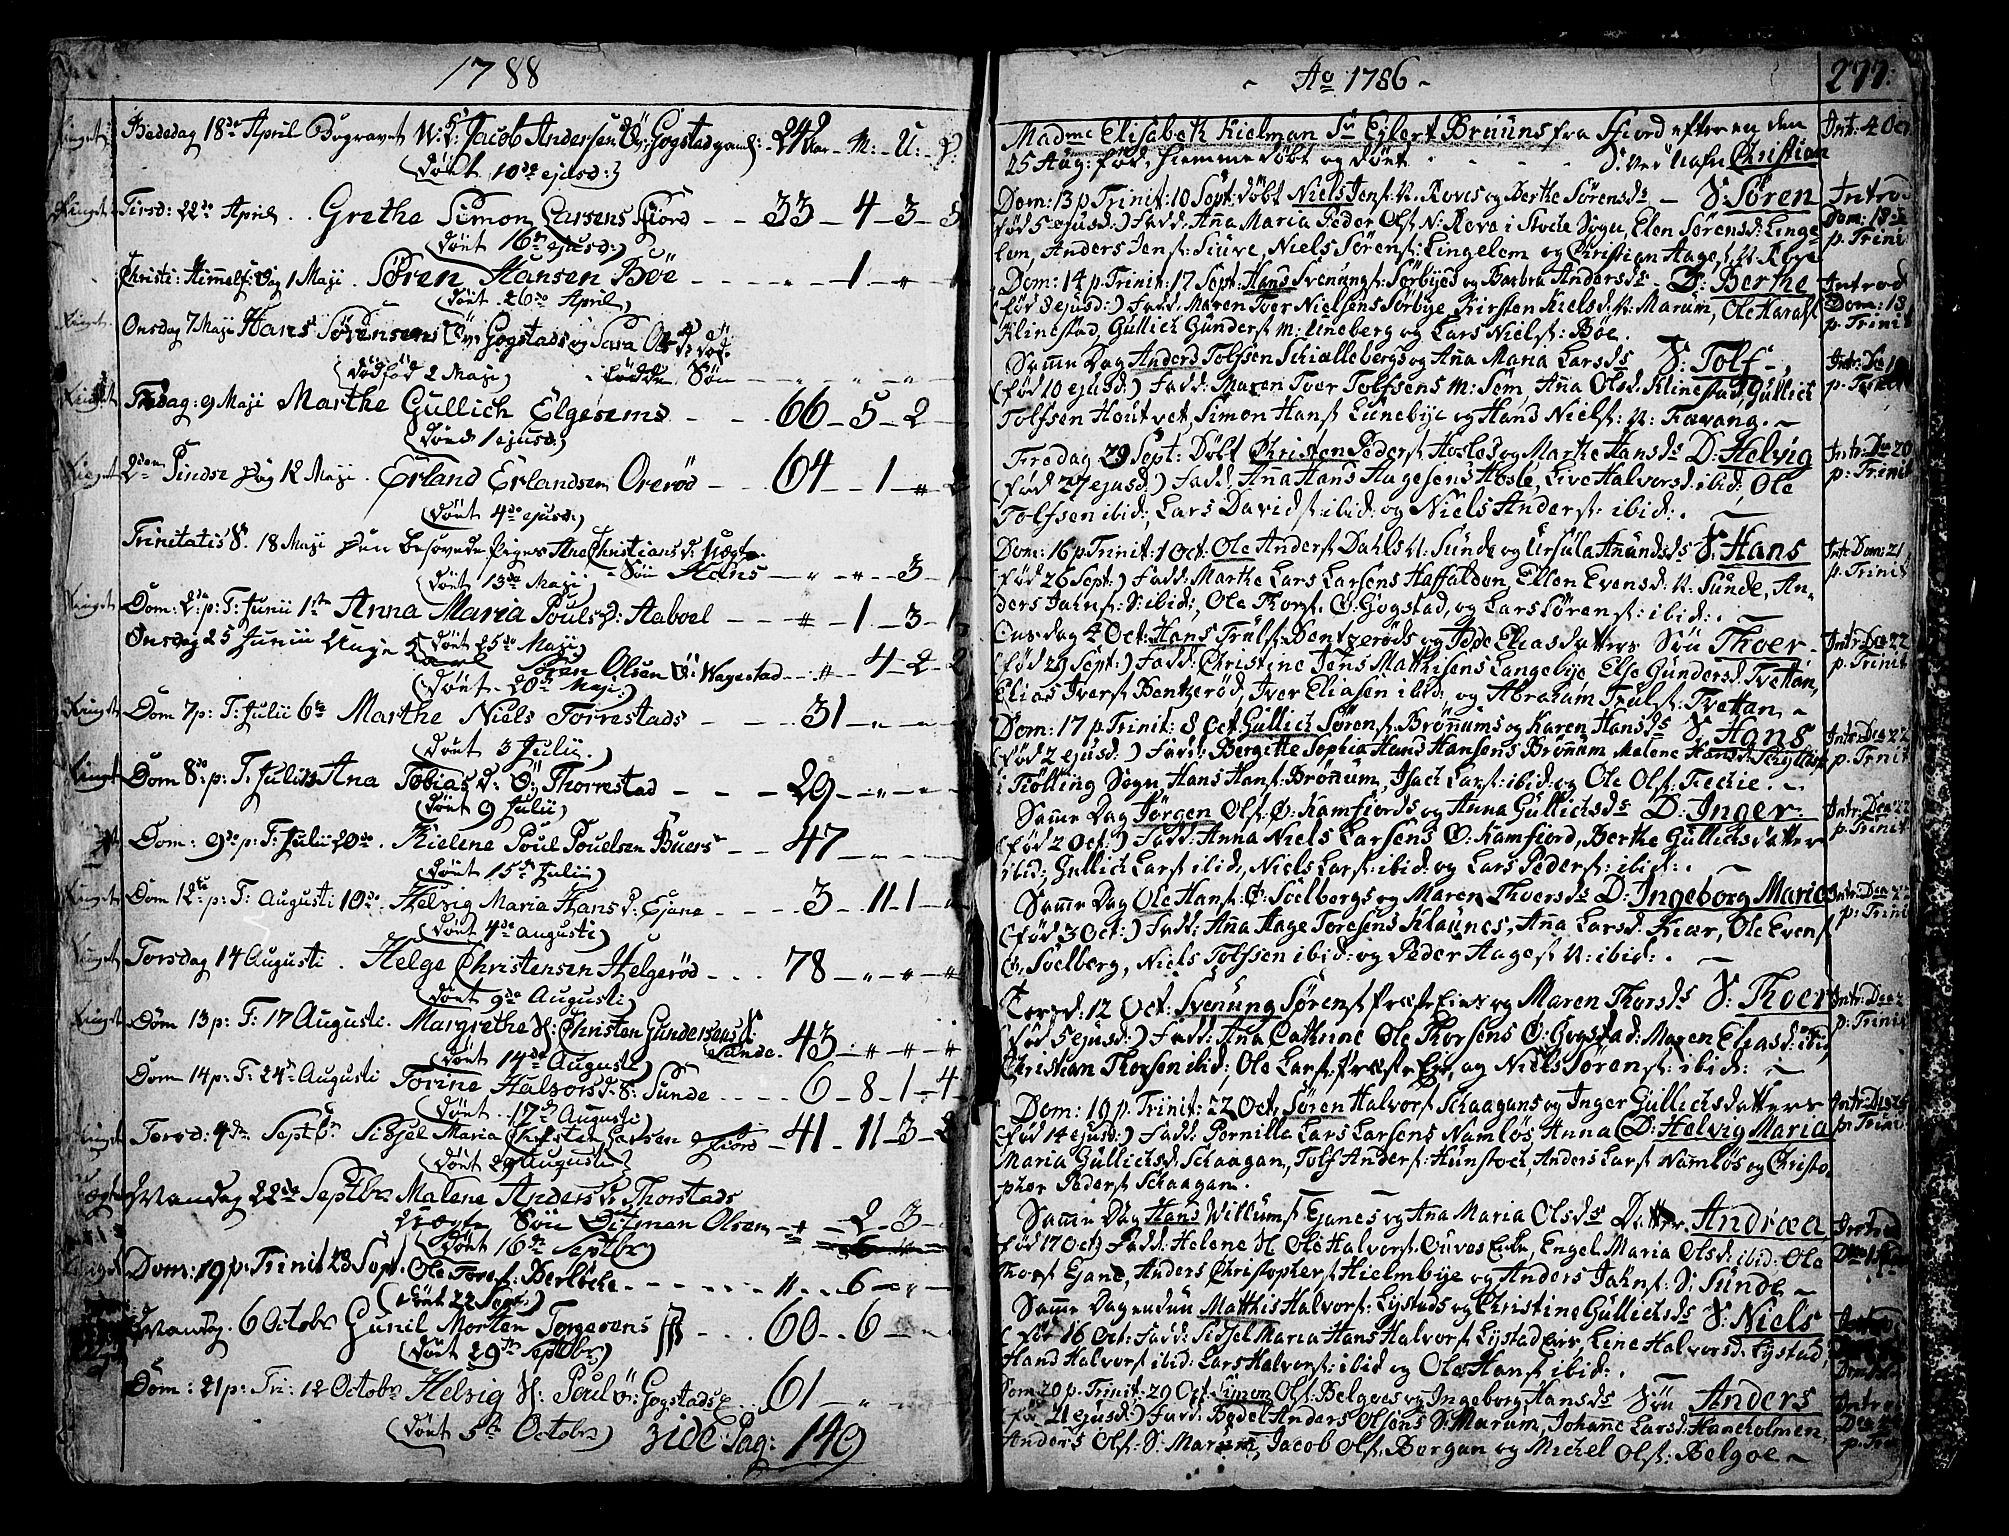 1788
Bededag 18de April Begravet Jacob Andersen Gogstad gaml: 24 Aar – M: – U: – D:
(døut 10de ejusd:)
Tirsd: 22de April . . Grethe Simon Larsens Fiord – – 33 – 4 – 3 –
(døut 16de ejusd:)
Christi: Himmelf: Dag 1 Maji . Søren Hansen Böe – – – 1 – „ –
(døut 26de April)
Onsdag 7 Maji Hans Sörensens Ö: Gogstads og Sara
(dödföd 2 Maji) födde Sön – „ – „ – „ –
Fredag: 9 Maji Marthe Gullich Elgesems – – 66 – 5 – 2 –
(døut 1 ejusd:)
2den Pindse Dag 12 Maji . Erland Erlandsen Orerød – – 64 – 1 – „ –
(døut 4de ejusd:)
Trinitatis S. 18 Maji Den besovede Piges Ane Christians d: Uægte
(døut 13de Maji) – Sön Hans – „ – „ – 3 – 1
Dom: 2de p: T: Junii 1ste Anna Maria Pouls D: Aaboel – – „ – 1 – 3 – 1
(døut 25de Maji)
Onsdag 25 Junii Søren Olsen Ö: Wegestad – „ – 4 – 2 – 2
(døut 20de Maji:)
Dom 7 p: T: Julii 6te Marthe Niels Torrestads – – 31 – „ – „ –
(døut 3 Julii.)
Dom 8de p: T: Julii Ana Tobias D: Ö: Thorrestad – – – 29 – „ – „ –
(døut 9 Julii)
Dom: 9de p: T: Julii 20de . Kielene Poul Poulsen Buers – – 47 – – –
(døut 15de Julii)
Dom 12te p: T: Augusti 10de . Helvig Maria Hans d: Ejane – – – 3 – 11 – 1 –
(døut 4de Augusti)
Torsdag 14 Augusti . Helge Christensen Helgerød – . . . 78 – „ – „ – „
(døut 9de Augusti)
Dom 13 p: T: 17 Augusti . Margrethe Christen Gundersens
(døut 14de Augusti) Sunde . 43 – „ – „ – „
Dom 14 p: T: 24de Augusti Torine Halvors d: S: Sunde – – – 6 – 8 – 1 – 4
(døut . . 17de Augusti)
Torsd: 4de Septbr Sidsel Maria Christen Larsen Fiord – 41 – 11 – 3 – 2
(døut 29 Augusti)
Mandag 22de Septbr Malene Anders D: Thorstads
Uægte Sön Ditman Olsen – „ – 2 – 3 –
(døut 16de Septbr)
Dom: 19 p: Trinit 28 Sept. Ole Tores: Berløche – – – „ – 6 – „ –
(døut 22 Sept:)
Mandg . 6 Octobr Gunil Morten Torgersens – . . . 60 – 6 –
(døut 29de Septbr)
Dom: 21 p: Tri: 12 Octobr Helvig Poul Ö: Gogstads . . 61 – „
(døut 5te Octobr) Side Pag: 149
– Ao 1786 – 277.
Madme Elisabeth Kielman Sr Ejlert Bruuns fra Fiord efter en den Int: 4 Oct
25 Aug: født, hiemmedöbt og døut – – S: ved Nafn Christian
Dom: 13 p Trinit: 10 Sept: döbt Niels Jens: N: Roves og Berthe Sørens ds – S: Søren Introd
(föd 5 ejusd:) Fadd: Aña Maria Peder Ols: N: Rova i Stoche Sogn, Elen Sørensd: Linge- Dom: 18
lem, Anders Jens: Siuve, Niels Sørens: Lingelem og Christian Aages: N: Roye p. Trinit
Dom: 14 p Trinit: 17 Sept: Hans Svenungs: Sørbyes og Barbra Anders ds – D: Berthe Introd
(föd 8 ejusd:) Fadd: Maren Iver Nielsens Sørbye, Kirsten Nielsd: N: Marum, Ole Haras: Dom: 18
Klinestad, Gullich Gunders: M: Lineberg og Lars Niels: Böe. p. Trinit
Same Dag Anders Tolfsen Schiallebergs og Aña Maria Lars ds S: Tolf – Intr: De 19
(föd 10 ejusd:) Fadd: Maren Iver Tolfsens M: Søm, Aña Olsd: Klinestad, Gullich p. Trinit
Tolfsen Houtvet, Simon Hans: Lunebye og Hans Niels: N: Favang. –
Fredag 29 Sept: Döbt Christen Peders: Hosles og Marthe Hans ds D: Helvig Intr: Do 20
(föd 27 ejusd:) Fadd: Aña Hans Hagesens Hosle, Live Halvorsd: ibid:, Ole p: Trinit
Tolfsen ibid:, Lars Davids: ibid: og Niels Anders: ibid: .
Dom: 16 p Trinit: 1 Oct: Ole Anders: Dahls N: Sunde og Ursula Amunds ds S: Hans Intr: Dom: 21
(föd 26 Sept:) Fadd: Marthe Lars Larsens Haffalden, Ellen Evensd: N: Sunde, An- p. Trinit
ders Jahns: S: ibid:, Ole Thors: Ö: Gogstad, og Lars Sørens: ibid: .
Onsdag 4 Oct: Hans Truls: Bentzerøds og Pede Eliasdatters Sön Thoer – Intr: Do 22
(föd 29 Sept:) Fadd: Christine Jens Matthisens Langebye, Else Gundersd: Tvetten, p: Trinit
Elias Ivers: Bentzerød, Iver Eliasen ibid: og Abraham Truls: Tvetten. –
Dom: 17 p Trinit: 8 Oct Gullich Sørens: Brøñums og Karen Hans ds S: Hans Intr: Do 22
(föd 2 ejusd:) Fadd: Bergitte Sophia Hans Hansens Brøñum, Malene Hansd: p: Trinit
i Tiølling Sogn, Hans Hans: Brøñum, Isach Lars: ibid: og Ole Ols: Fechie . –
Same Dag Jørgen Ols: Ö: Kamfjords og Anna Gullichs ds D: Inger – Intr: Do 22
(föd 2 Oct:) Fadd: Anna Niels Larsens Ö: Kamfjord, Berthe Gullichsdatter p: Trinit
ibid:, Gullich Lars: ibid, Niels Lars: ibid: og Lars Peders: ibid: .
Same Dag Ole Hans: Ö: Soelbergs og Maren Thoers ds D: Ingeborg Maria Intr: Do 22
(föd 3 Oct:) Fadd: Aña Hage Toresens Klaunes, Aña Larsd: Kiær, Ole Evens: p: Trinit
Ö: Soelberg, Niels Tolfsen ibid: og Peder Aages: N: ibid: .
Torsd: 12 Oct: Svenung Sørens: Præste Eies og Maren Thors ds S: Thoer Intr: Do 2
(föd 5 ejusd:) Fadd: Aña Cathrine Ole Thorsens Ö: Gogstad, Maren Eliasd: ibid p: Trinit
Christian Thorsen ibid:, Ole Lars: Præste Eie, og Niels Sørens: ibid: –
Dom: 19 p. Trinit: 22 Oct, Søren Halvors: Schaagans og Inger Gullichsdatters Intr: Do 25
(föd 14 ejusd:) Fadd: Pernilla Lars Larsens Namløs, Anna (D: Helvig Maria p: Trinit
Maria Gullichsd: Schaagan, Tolf Anders: Hunstoch, Anders Lars: Namløs og Christo-
pher Peders: Schaagan.
Same Dag Hans Willums: Ejanes og Aña Maria Ols ds Datter Andrea Introd
föd 17 Oct) Fadd: Helene Ole Halvors: Ouves Enke, Engel Maria Olsd: ibid: Ole
Thors: Ejane, Anders Christophers: Hielmbye og Anders Jahns: S: Sunde –
Same Dag endnu Matthis Halvors: Lystads og Christine Gullichs ds S: Niels Introd
(föd 16 Oct: Fadd: Sidsel Maria Hans Halvors: Lystad Eie, Lene Halvorsd: Lystad,
Hans Halvors: ibid: Lars Halvors: ibid og Ole Hans: ibid: .
Dom 20 p: Trinit: 29 Oct: Simon Ols: Belgoes og Ingeborg Hans ds Sön Anders Introd
föd 21 ejusd:) Fadd: Bodel Anders Olsens S: Marum, Johañe Larsd: Haneholmen,
Anders Ols: S: Marum, Jacob Ols: Borgan og Michel Ols: Belgoe –